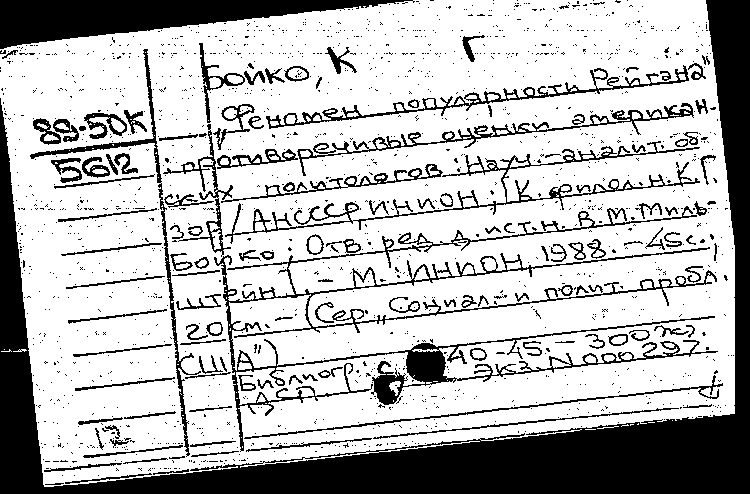 Бойко, К Г
89-50К
5612
„Феномен популярности Рейгана"
: противоречивые оценки американ-
ских политологов : Науч.-аналит. об-
зор / АН СССР, ИНИОН ; [К. филол. н. К.Г.
Бойко ; Отв. ред. д. ист. н. В.М. Миль-
штейн]. - М. : ИНИОН, 1988. - 45 с. ;
20 см. - (Сер. „Социал. и полит. пробл.
США")
Библиогр.: с. 40-45. - 300 экз.
ДСП. Экз. N 000297.
12